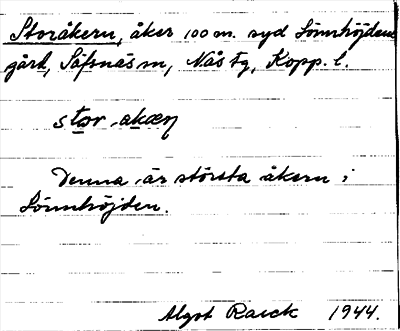 Storåkern, åker 100 m. syd Sörmhöjdens
gård, Säfsnäs sn, Nås tg, Kopp. l.
stor åkæn
Denna är största åkern i
Sörmhöjden.
Algot Raeck 1944.